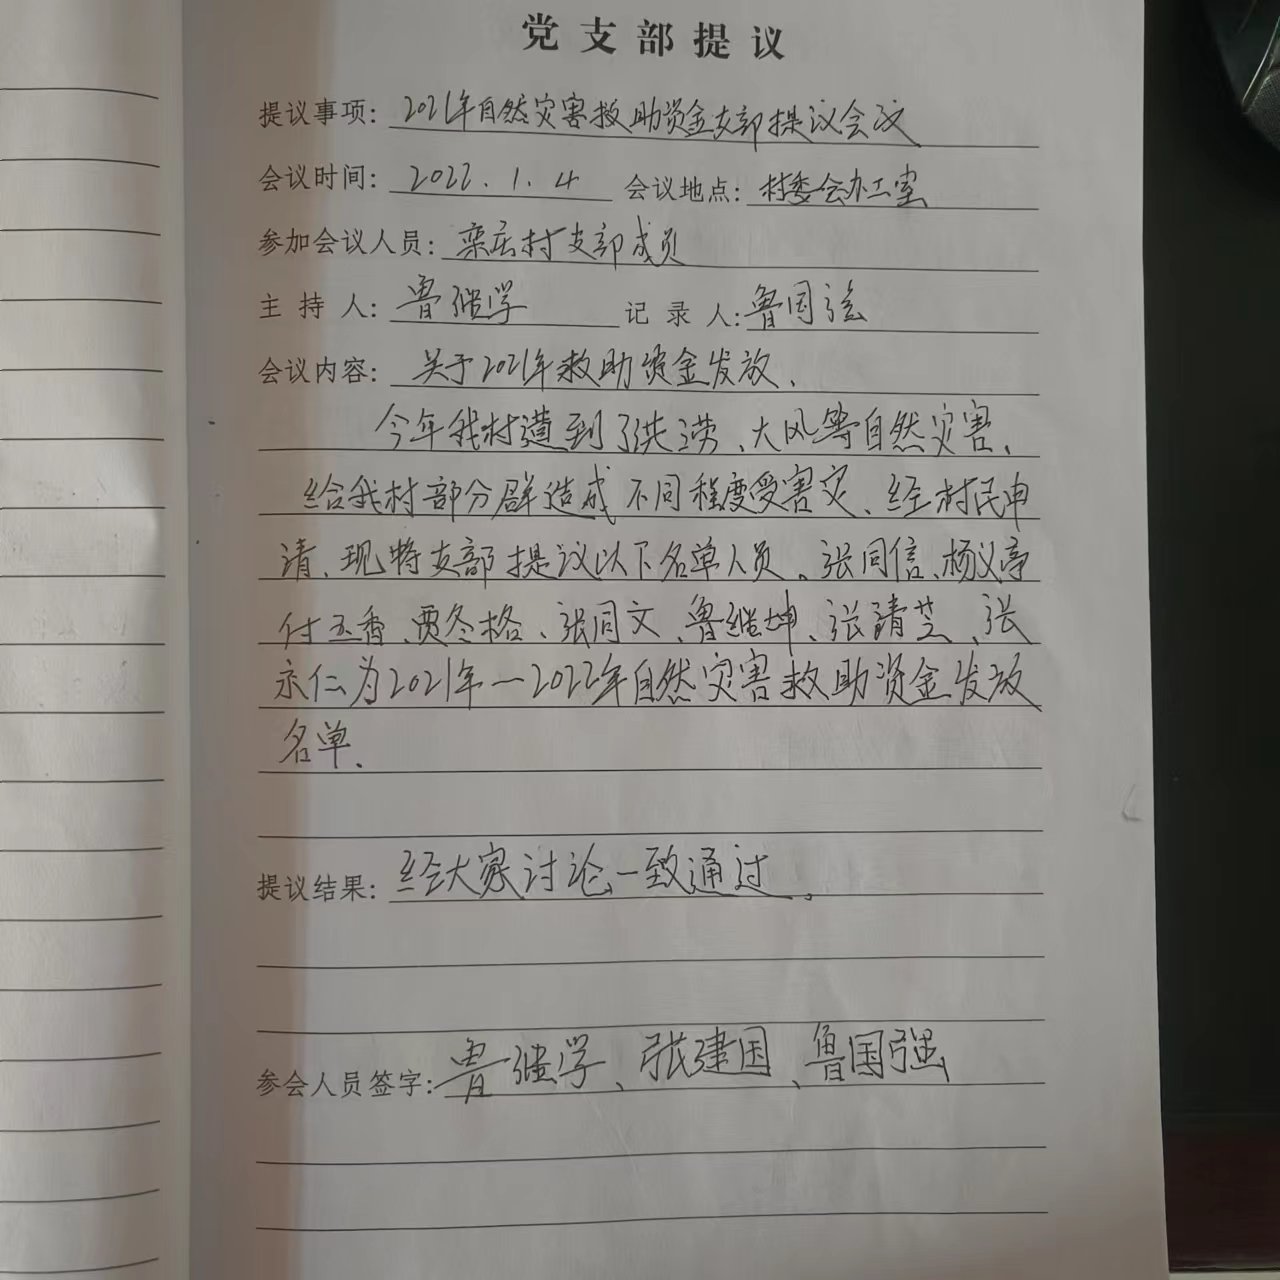 党支部提议
提议事项: 2021年自然灾害救助资金支部提议会议
会议时间: 2022.1.4 会议地点: 村委会办工室
参加会议人员: 栾庄村支部成员
主持人: 鲁继学 记录人: 鲁国强
会议内容: 关于2021年救助资金发放、
今年我村遭到了洪涝、大风等自然灾害、
给我村部分群造成不同程度受害灾、经村民申
请、现特支部提议以下名单人员。张同信、杨义亭
付玉香、贾冬格、张同文、鲁继坤、张清芝、张
永仁为2021年—2022年自然灾害救助资金发放
名单、
提议结果: 经大家讨论一致通过。
参会人员签字: 鲁继学、张建国、鲁国强